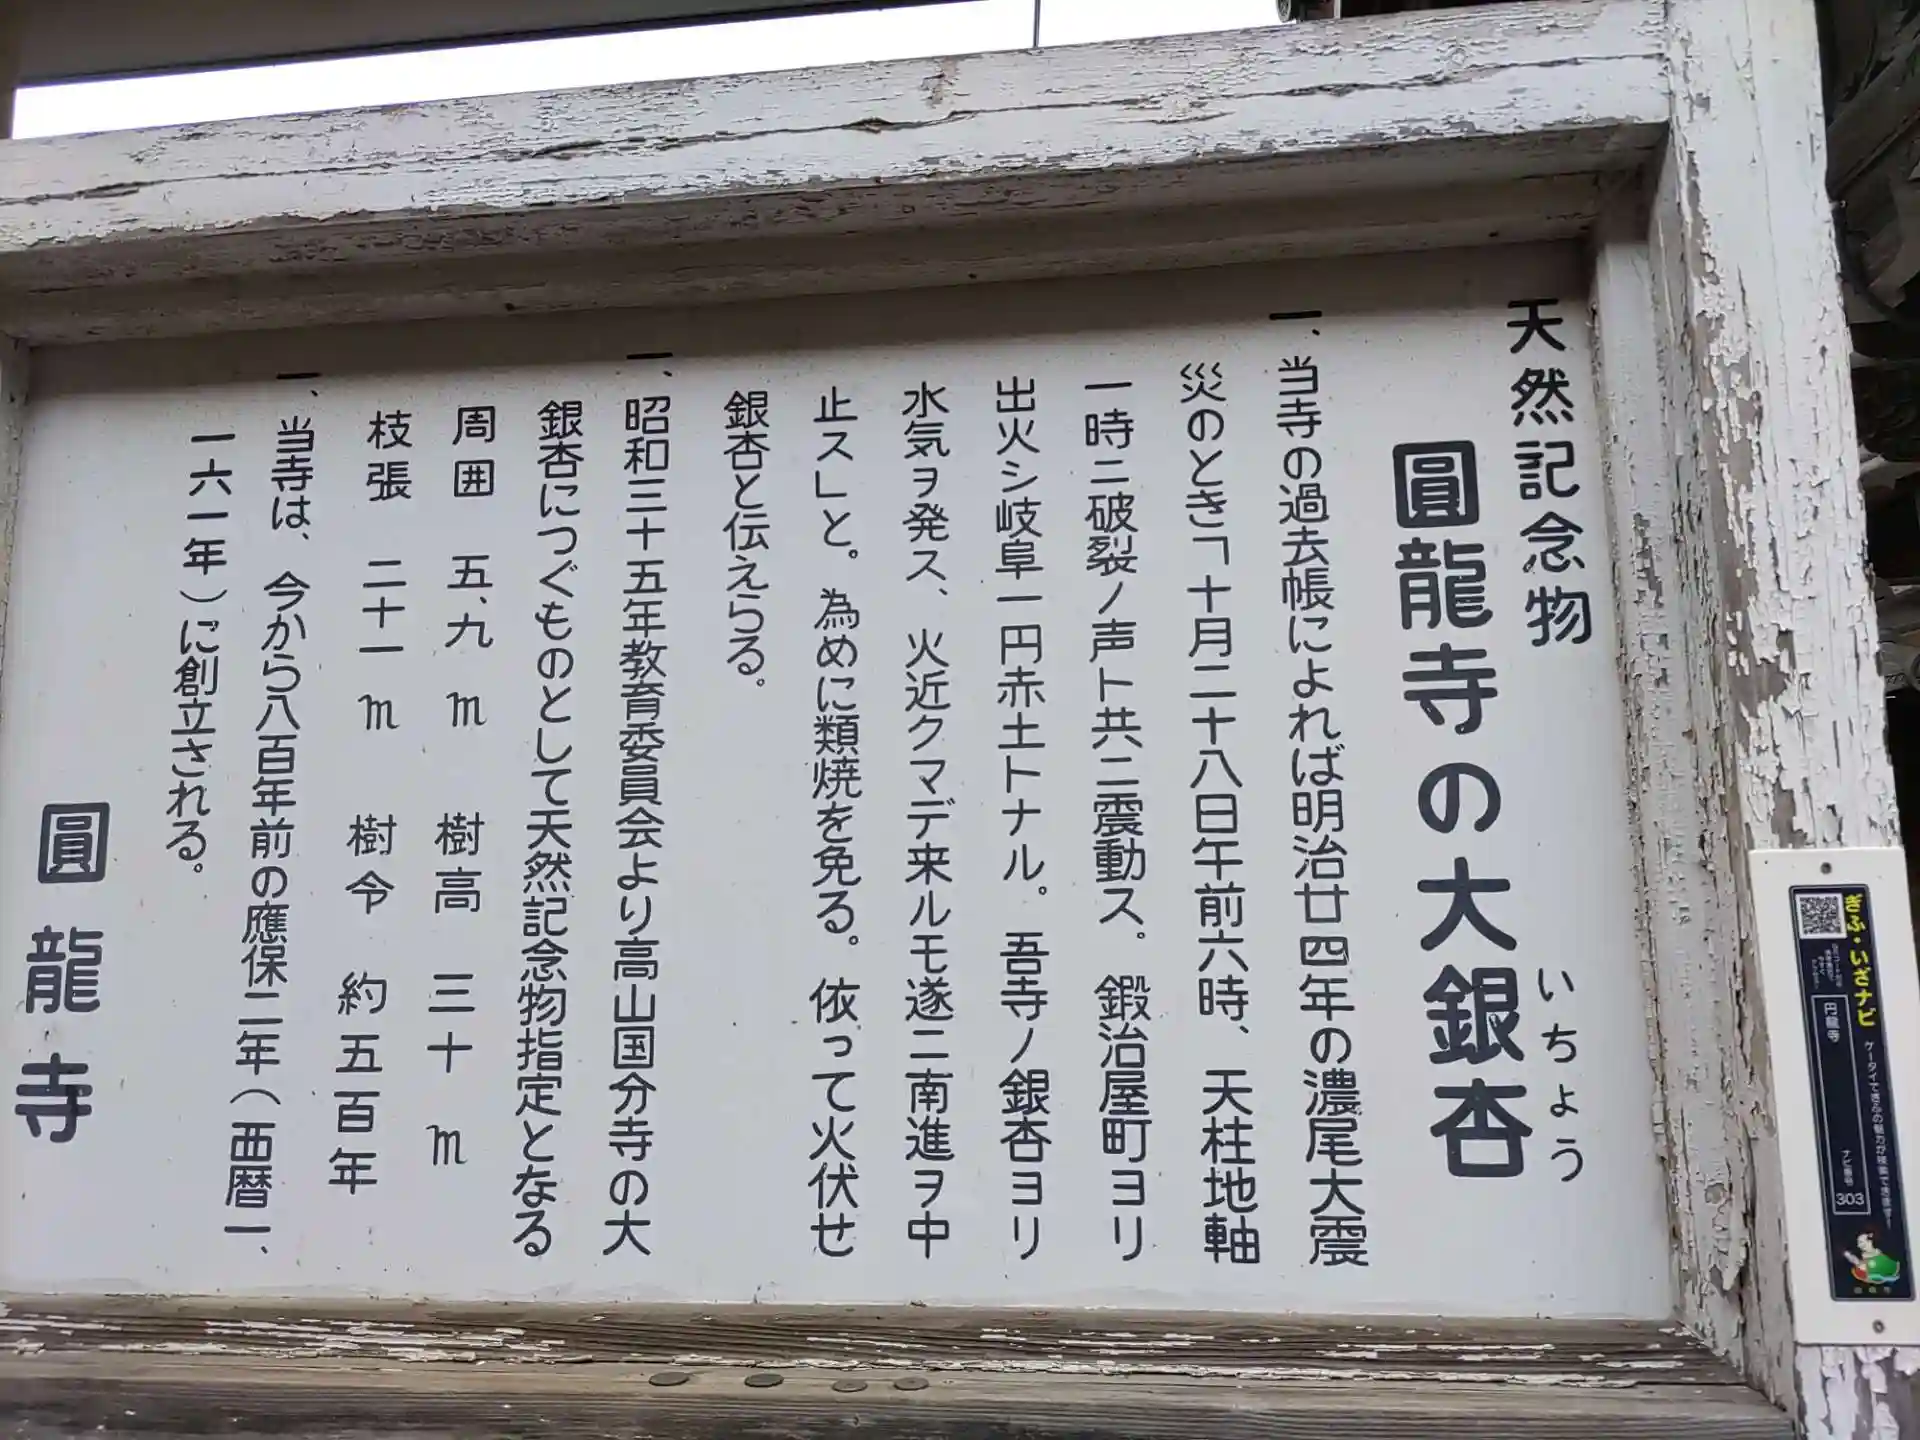 天然記念物
圓龍寺の大銀杏
いちょう
一、当寺の過去帳によれば明治廿四年の濃尾大震
災のとき「十月二十八日午前六時、天柱地軸
一時ニ破裂ノ声ト共ニ震動ス。鍛治屋町ヨリ
出火シ岐阜一円赤土トナル。吾寺ノ銀杏ヨリ
水気ヲ発ス、火近クマデ来ルモ遂ニ南進ヲ中
止ス」と。為めに類焼を免る。依って火伏せ
銀杏と伝えらる。
一、昭和三十五年教育委員会より高山国分寺の大
銀杏につぐものとして天然記念物指定となる
周囲 五、九m 樹高 三十m
枝張 二十一m 樹令 約五百年
一、当寺は、今から八百年前の應保二年(西暦一、
一六一年)に創立される。
圓龍寺
ぎふ・いざナビ
ケータイでぎふの魅力が検索できます!
円龍寺
ナビ番号 303